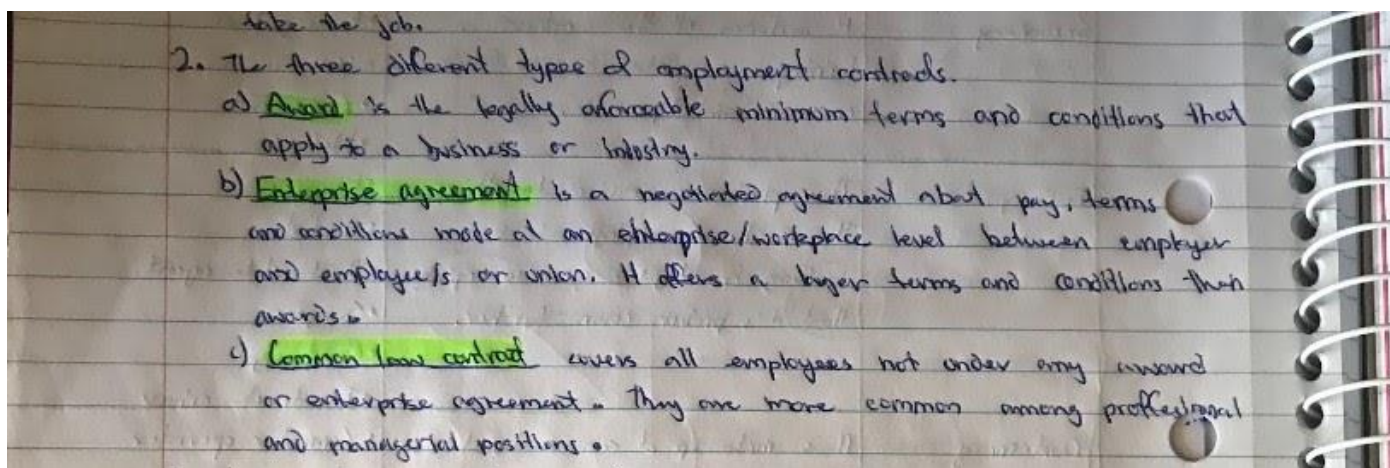 take the job.
2. The three different types of employment contracts.
a) Award is the legally enforceable minimum terms and conditions that
apply to a business or industry.
b) Enterprise agreement is a negotiated agreement about pay, terms
and conditions made at an enterprise/workplace level between employer
and employee/s or union. It offers a larger terms and conditions than
awards.
c) Common law contract covers all employees not under any award
or enterprise agreement. They are more common among proffesional
and managerial positions.